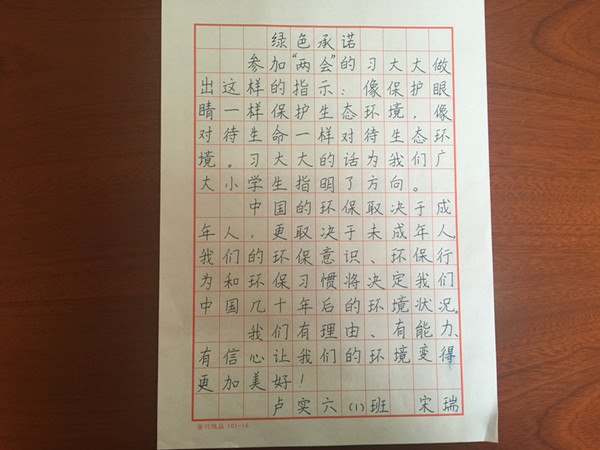 绿色承诺
参加“两会”的习大大做
出这样的指示：像保护眼
睛一样保护生态环境，像
对待生命一样对待生态环
境。习大大的话为我们广
大小学生指明了方向。
中国的环保取决于成
年人，更取决于未成年人，
我们的环保意识、环保行
为和环保习惯将决定我们
中国几十年后的环境状况。
我们有理由、有能力、
有信心让我们的环境变得
更加美好！
卢实六（1）班 宋瑞
101-16